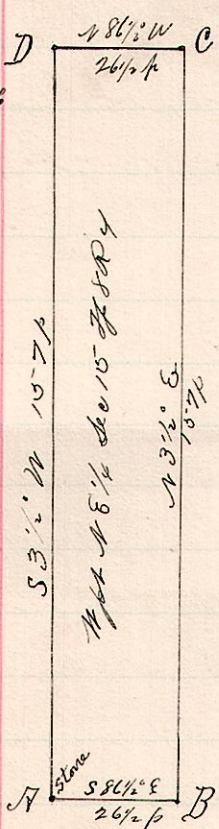 D
N 86 1/2° W
C
26 1/2 p
S 3 1/2° W 157 p
N E 1/4 Sec 15 R 4
N 3 1/2° E
157 p
Stone
A
S 86 1/2° E
B
26 1/2 p